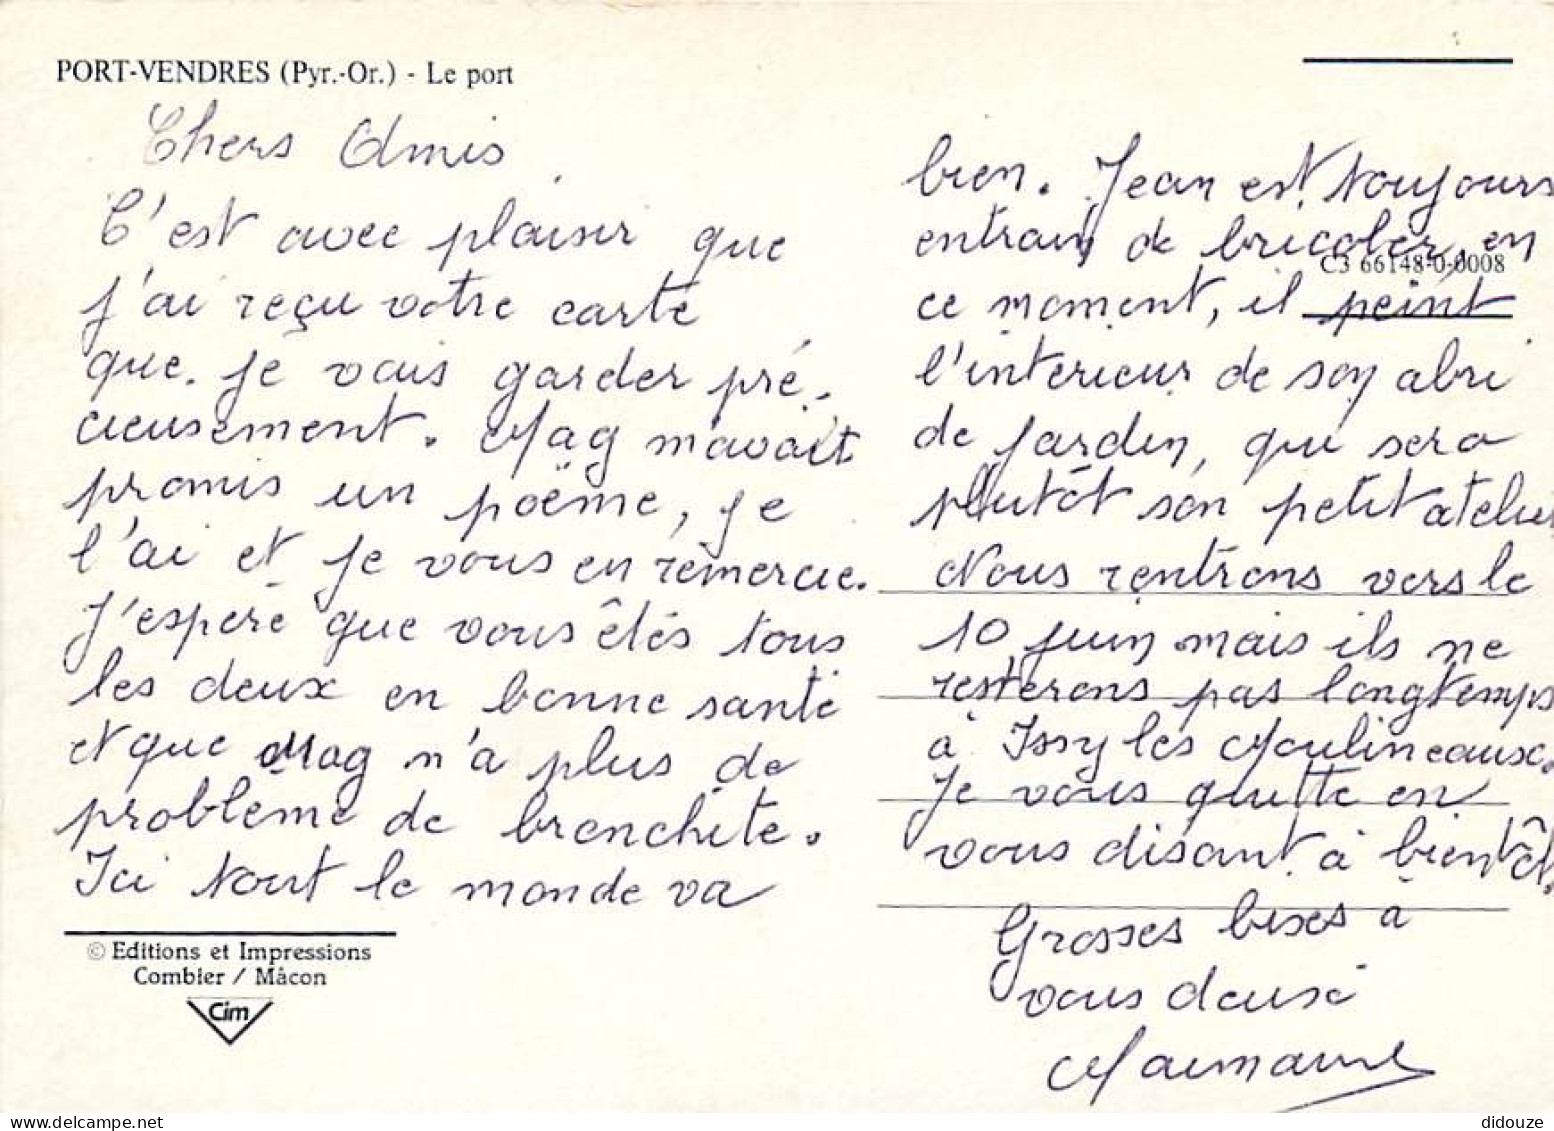 PORT-VENDRES (Pyr.-Or.) - Le port
Chers Amis
C'est avec plaisir que
j'ai reçu votre carte
que. je vais garder pré-
cieusement. Mag m'avait
promis un poëme, je
l'ai et je vous en remercie.
J'espère que vous êtés tous
les deux en bonne santé
et que Mag n'a plus de
problème de bronchite.
Ici tout le monde va
© Editions et Impressions
Combier / Mâcon
Cim
bien. Jean est toujours
entrain de bricoler, en
C3 66148-0-0008
ce moment, il peint
l'intérieur de son abri
de jardin, qui sera
plutôt son petit atelier
Nous rentrons vers le
10 juin mais ils ne
resterons pas longtemps
à Issy les Moulineaux.
Je vous quitte en
vous disant à bientôt.
Grosses bises à
vous deux
didouze